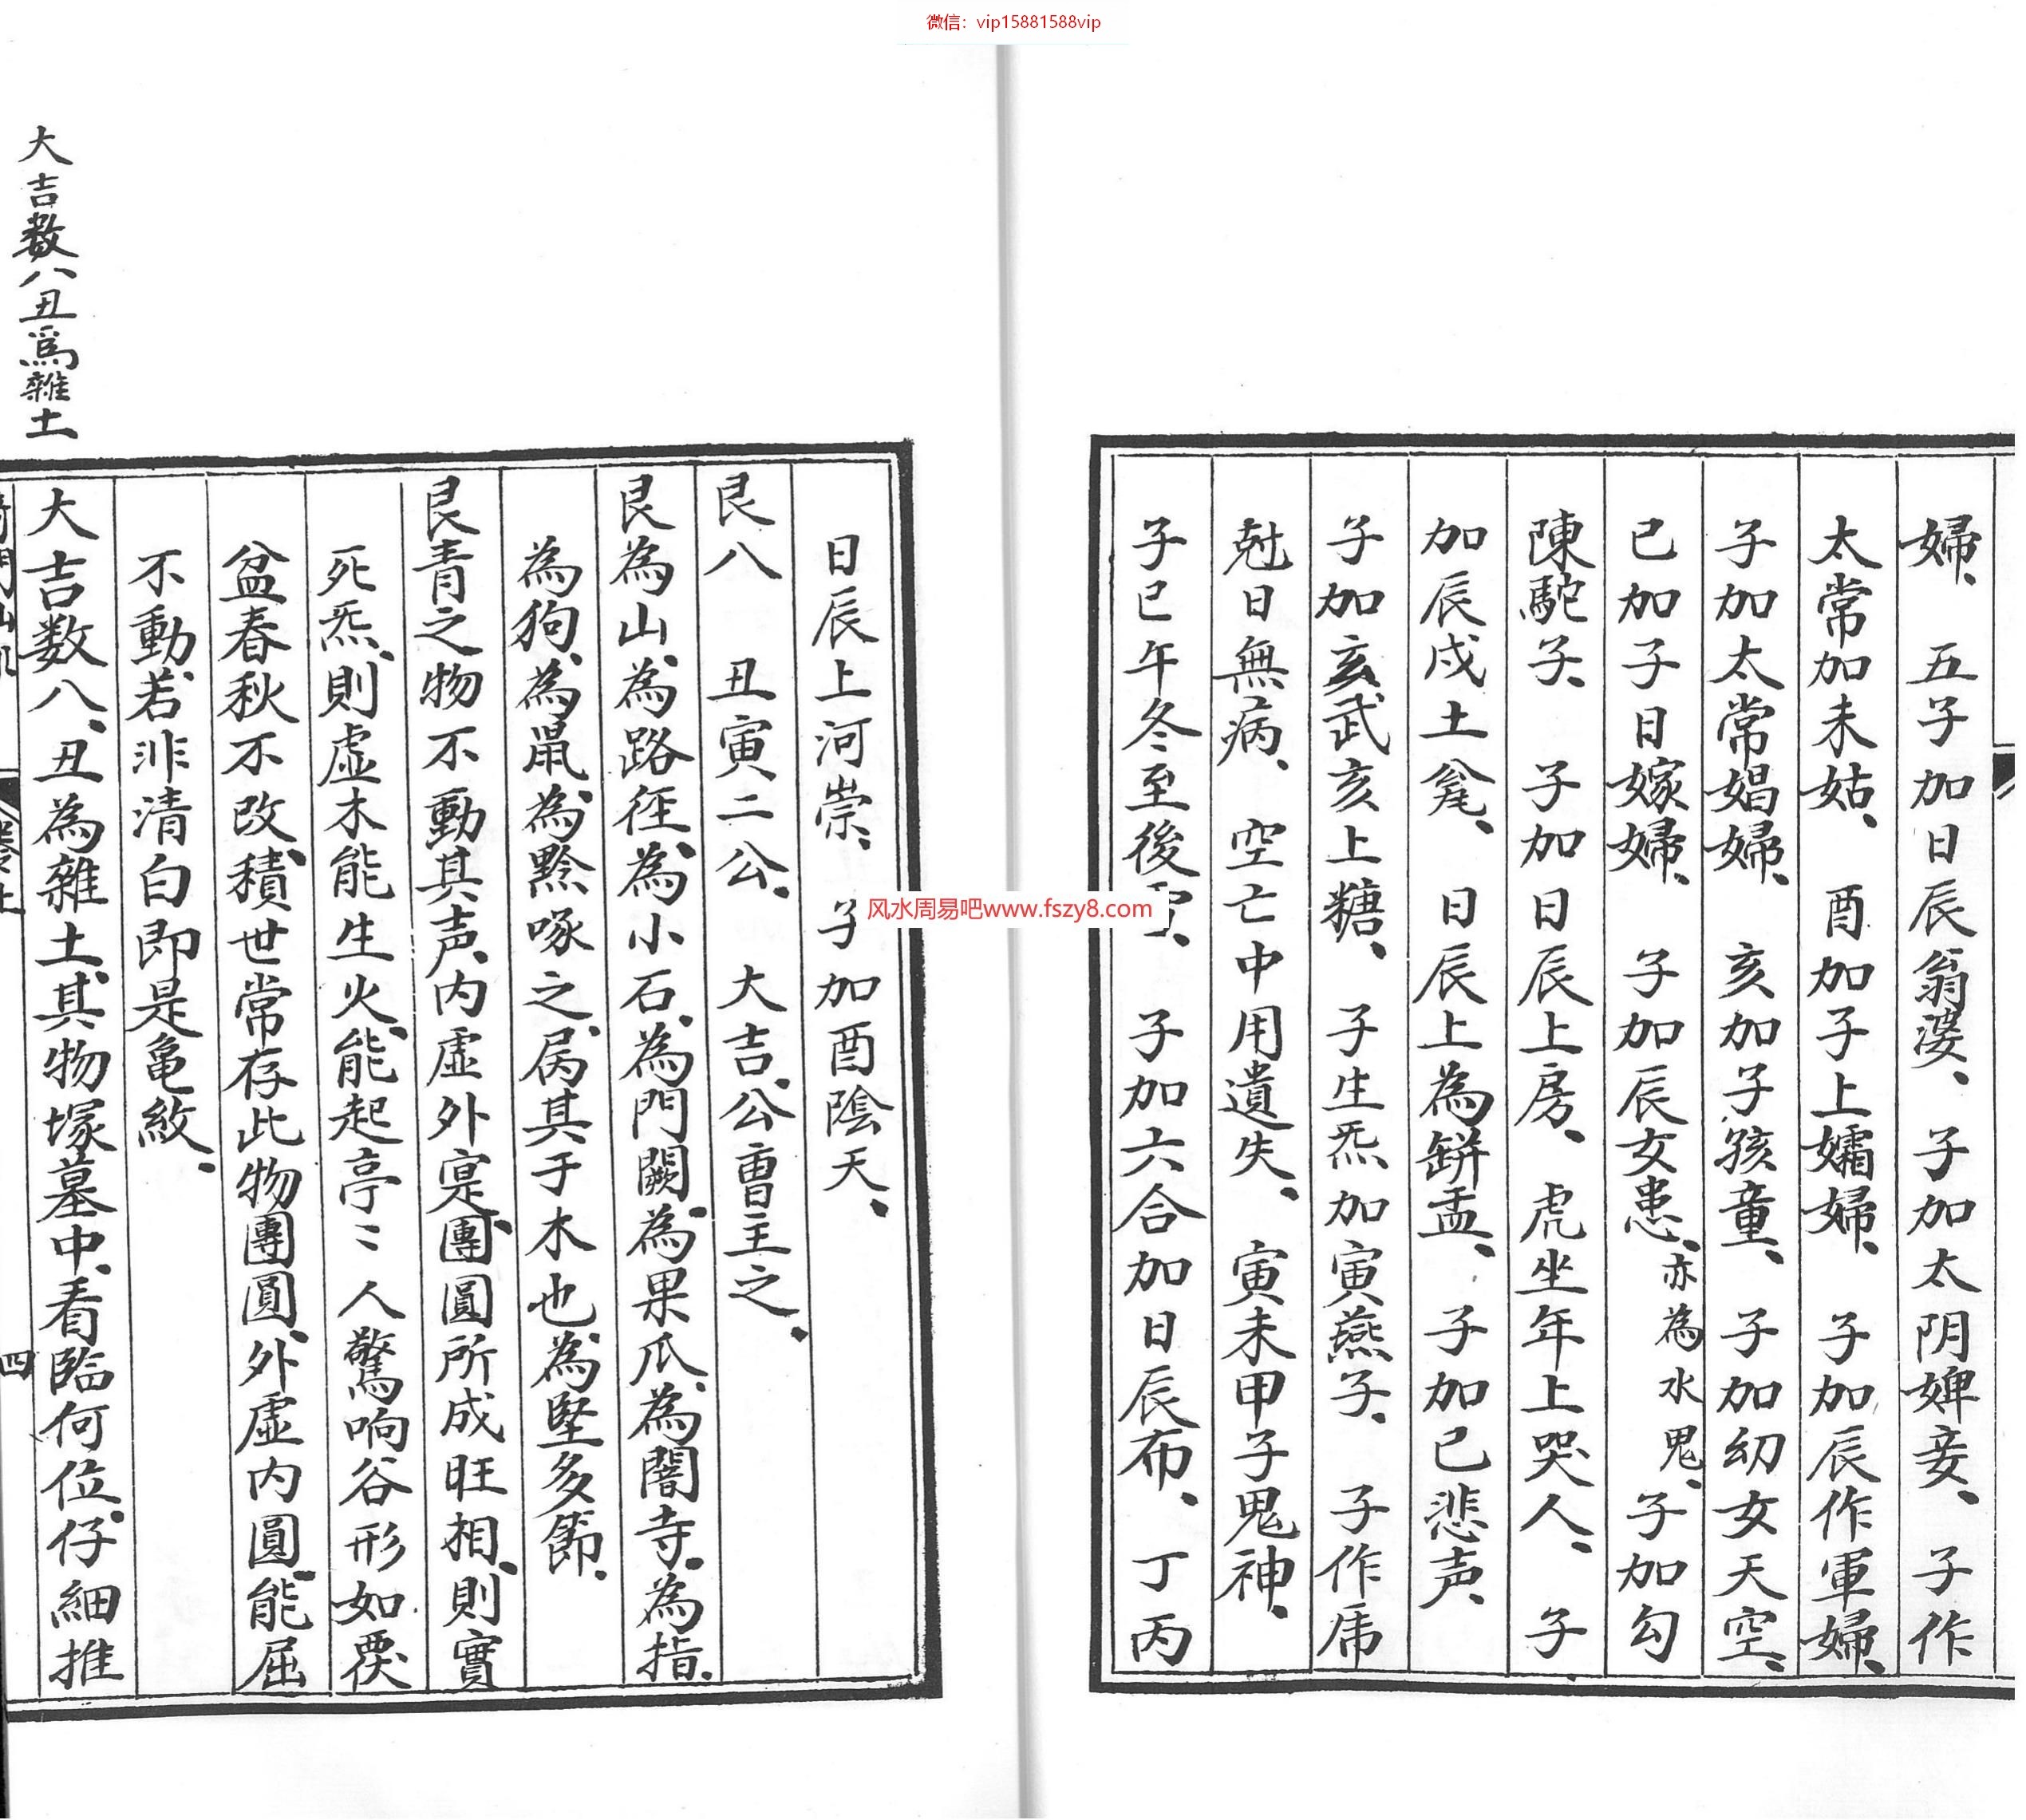 微信：vip15881588vip
婦、　五子加日辰翁婆、　子加太阴婢妾、　子作
太常加未姑、　酉加子上孀婦、　子加辰作軍婦、
子加太常娼婦、　亥加子孩童、　子加幼女天空、
已加子日嫁婦、　子加辰女患、亦為水鬼、子加勾
陳駝子、　子加日辰上房、　虎坐年上哭人、　子
加辰戌土、　日辰上為缾盂、　子加已悲声、
子加亥武亥上糖、　子生炁加寅燕子、　子作乕
尅日無病、　空亡中用遺失、　寅未甲子鬼神、
子已午冬至後、　子加六合加日辰布、　丁丙
风水周易吧www.fszy8.com
日辰上河崇、　子加酉陰天、
艮八　丑寅二公、　大吉、公曹主之、
艮為山、為路徑、為小石、為門闕、為果瓜、為閽寺、為指、
為狗、為鼠、為黔啄之、屬其于木也、為堅多節、
艮青之物不動其声、内虛外寔、團圓所成旺相、則實
死炁、則虛木能生火、能起亭〻人驚响谷形如覆
盆春秋不改、積世常存此物團圓、外虛内圓、能屈
不動、若非清白即是亀紋、
大吉数八、丑為雜土、其物塚墓中、看臨何位、仔細推
大吉数八丑爲雜土
四